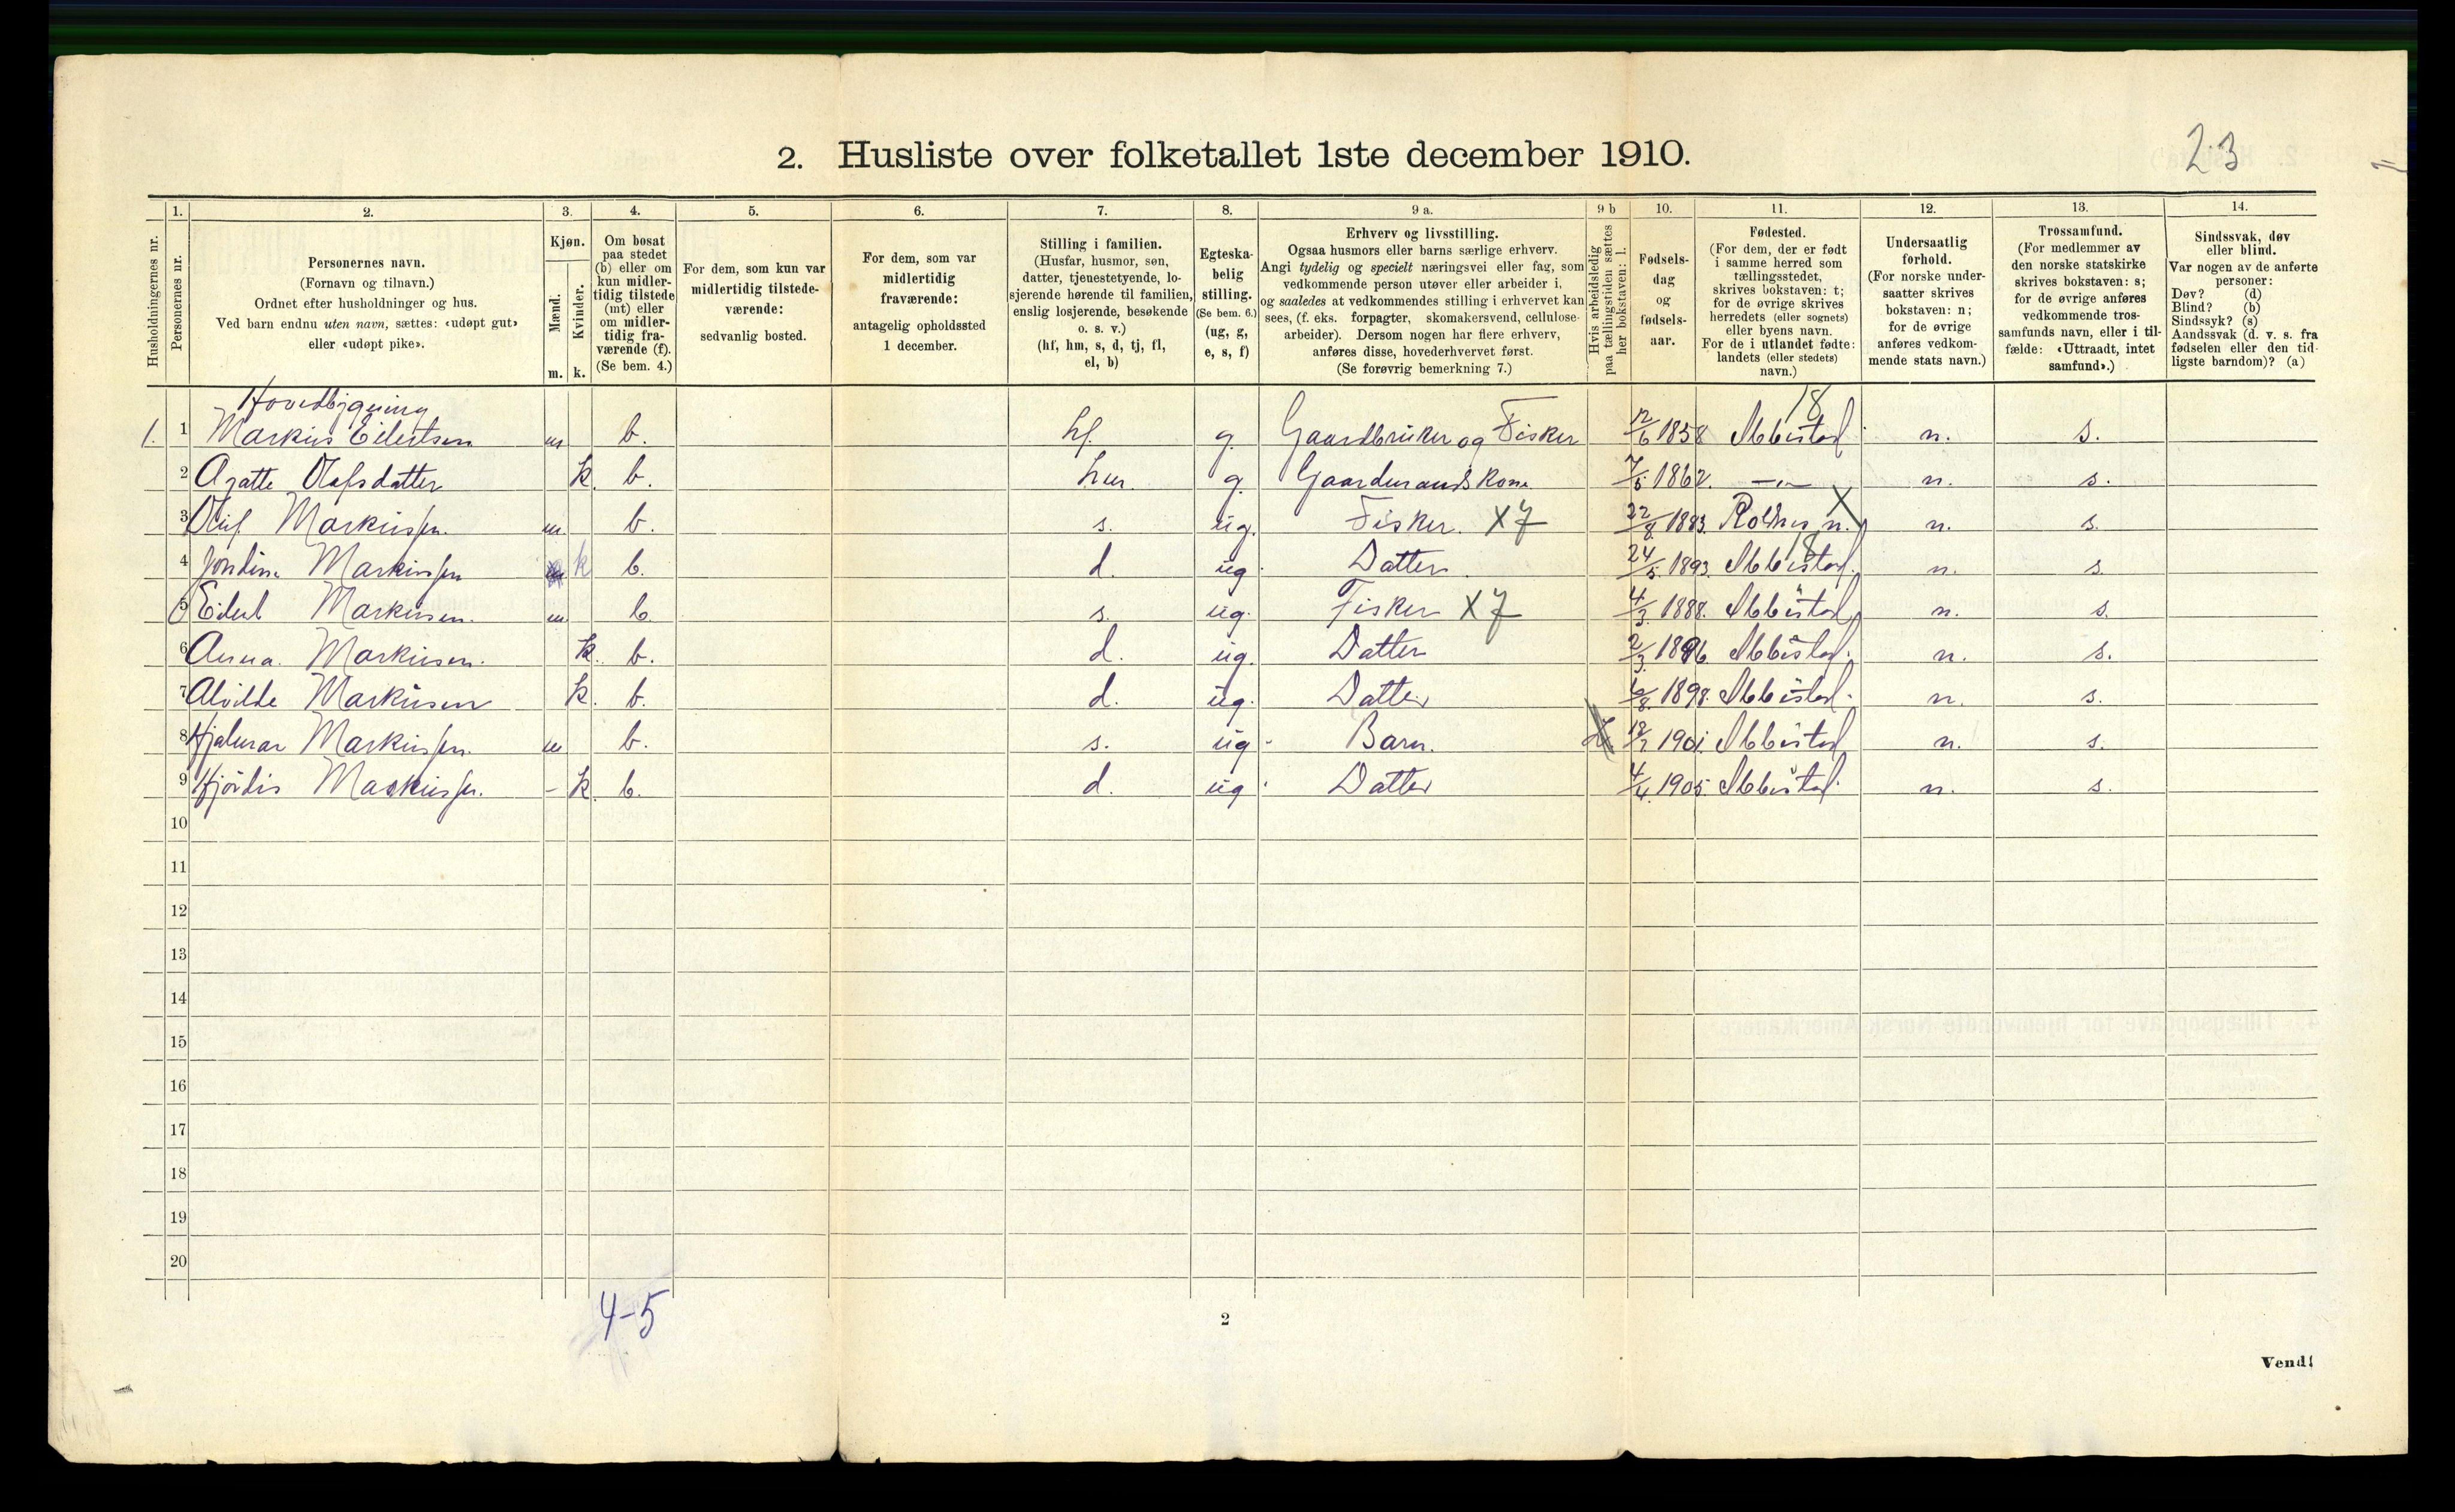 2. Husliste over folketallet 1ste december 1910.
23
Husholdningernes nr.
1.
Personernes nr.
2.
Personernes navn.
(Fornavn og tilnavn.)
Ordnet efter husholdninger og hus.
Ved barn endnu uten navn, sættes: «udøpt gut»
eller «udøpt pike».
3.
Kjøn.
Mænd.
Kvinder.
m. k.
4.
Om bosat
paa stedet
(b) eller om
kun midler-
tidig tilstede
(mt) eller
om midler-
tidig fra-
værende (f).
(Se bem. 4.)
5.
For dem, som kun var
midlertidig tilstede-
værende:
sedvanlig bosted.
6.
For dem, som var
midlertidig
fraværende:
antagelig opholdssted
1 december.
7.
Stilling i familien.
(Husfar, husmor, søn,
datter, tjenestetyende, lo-
sjerende hørende til familien,
enslig losjerende, besøkende
o. s. v.)
(hf, hm, s, d, tj, fl,
el, b)
8.
Egteska-
belig
stilling.
(Se bem. 6.)
(ug, g,
e, s, f)
9 a.
Erhverv og livsstilling.
Ogsaa husmors eller barns særlige erhverv.
Angi tydelig og specielt næringsvei eller fag, som
vedkommende person utøver eller arbeider i,
og saaledes at vedkommendes stilling i erhvervet kan
sees, (f. eks. forpagter, skomakersvend, cellulose-
arbeider). Dersom nogen har flere erhverv,
anføres disse, hovederhvervet først.
(Se forøvrig bemerkning 7.)
9 b
Hvis arbeidsledig
paa tællingstiden sættes
her bokstaven: l.
10.
Fødsels-
dag
og
fødsels-
aar.
11.
Fødested.
(For dem, der er født
i samme herred som
tællingsstedet,
skrives bokstaven: t;
for de øvrige skrives
herredets (eller sognets)
eller byens navn.
For de i utlandet fødte:
landets (eller stedets)
navn.)
12.
Undersaatlig
forhold.
(For norske under-
saatter skrives
bokstaven: n;
for de øvrige
anføres vedkom-
mende stats navn.)
13.
Trossamfund.
(For medlemmer av
den norske statskirke
skrives bokstaven: s;
for de øvrige anføres
vedkommende tros-
samfunds navn, eller i til-
fælde: «Uttraadt, intet
samfund».)
14.
Sindssvak, døv
eller blind.
Var nogen av de anførte
personer:
Døv? (d)
Blind? (b)
Sindssyk? (s)
Aandssvak (d. v. s. fra
fødselen eller den tid-
ligste barndom)? (a)
Hovedbygning 18
1. 1 Markus Eilertsen m b. hf. g. Gaardbruker og Fisker 12/6 1858 n. s.
2 Agatte Olafsdatter k. b. hm. g. Gaardmandskone 7/5 1862. —"— n. s.
3 Oluf Markussen. m. b. s. ug. Fisker. X7 22/8 1883. X n. s.
4 Markussen k b. d. ug. Datter. 24/5 1893. 18 n. s.
5 Eilert Markusen. m b. s. ug. Fisker X7 4/3 1888. n. s.
6 Anna. Markusen. k. b. d. ug. Datter 2/3 1896. n. s.
7 Alvilde Markusen k. b. d. ug. Datter 6/8. 1898. n. s.
8 Hjalmar Markussen. m b. s. ug. Barn. 1901. n. s.
9 Hjördis Markussen. - k. b. d. ug. Datter 4/4. 1905. n. s.
10
11
12
13
14
15
16
17
18
19
20
4-5
2
Vend!